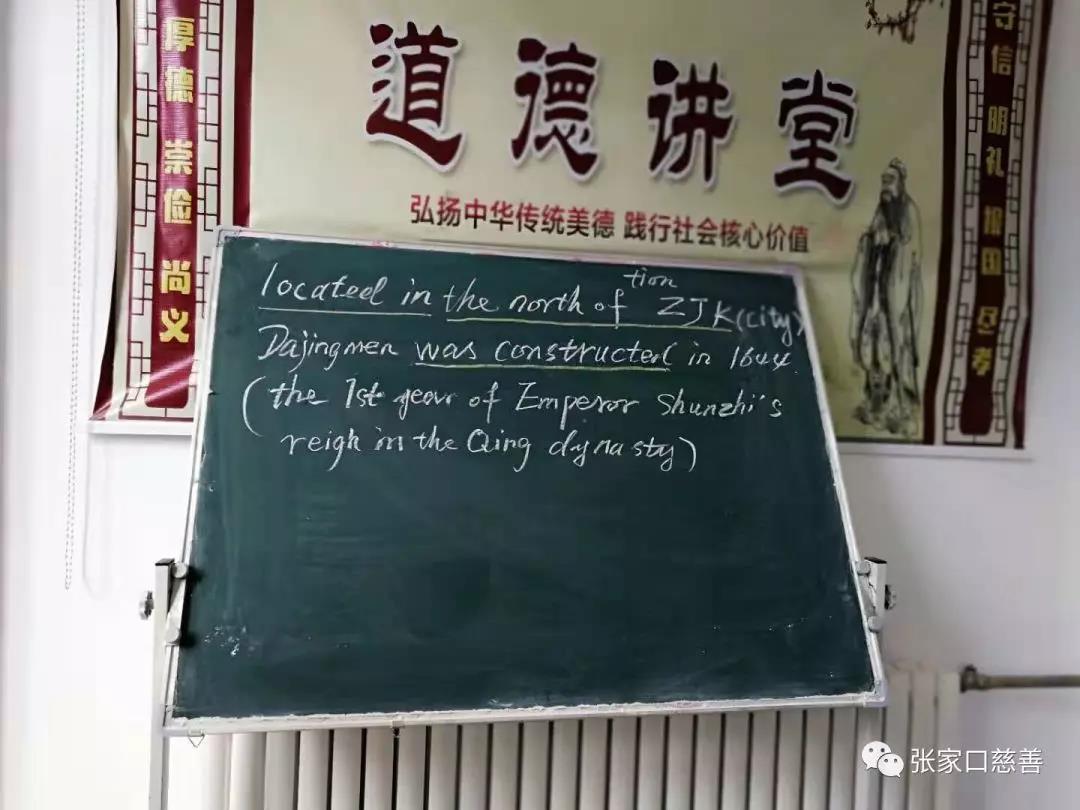 道德讲堂
弘扬中华传统美德 践行社会核心价值
厚德 崇俭 尚义
守信 明礼 报国 尽孝
tion
located in the north of ZJK(city)
Dajingmen was constructed in 1644.
(the 1st year of Emperor Shunzhi's
reigh in the Qing dynasty)
张家口慈善